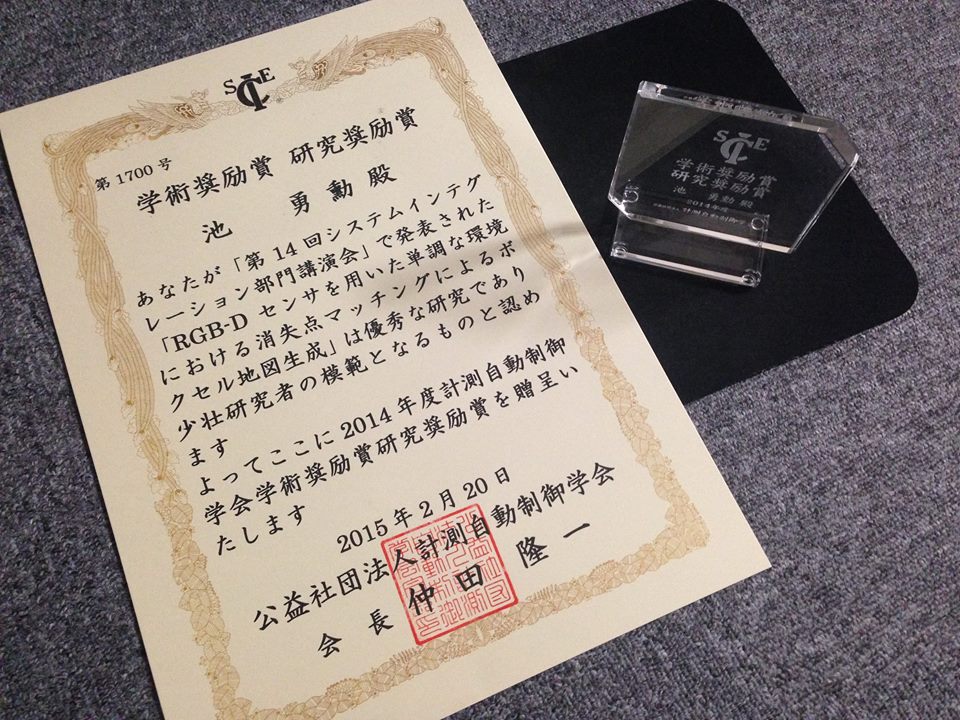 SICE
第1700号
学術奨励賞 研究奨励賞
池 勇勳 殿
あなたが「第14回システムインテグ
レーション部門講演会」で発表された
「RGB-D センサを用いた単調な環境
における消失点マッチングによるボ
クセル地図生成」は優秀な研究であり
少壮研究者の模範となるものと認め
ます
よってここに2014年度計測自動制御
学会学術奨励賞研究奨励賞を贈呈い
たします
2015年2月20日
公益社団法人計測自動制御学会
会長 仲田隆一
SICE
学術奨励賞
研究奨励賞
池 勇勳 殿
2014年度
計測自動制御